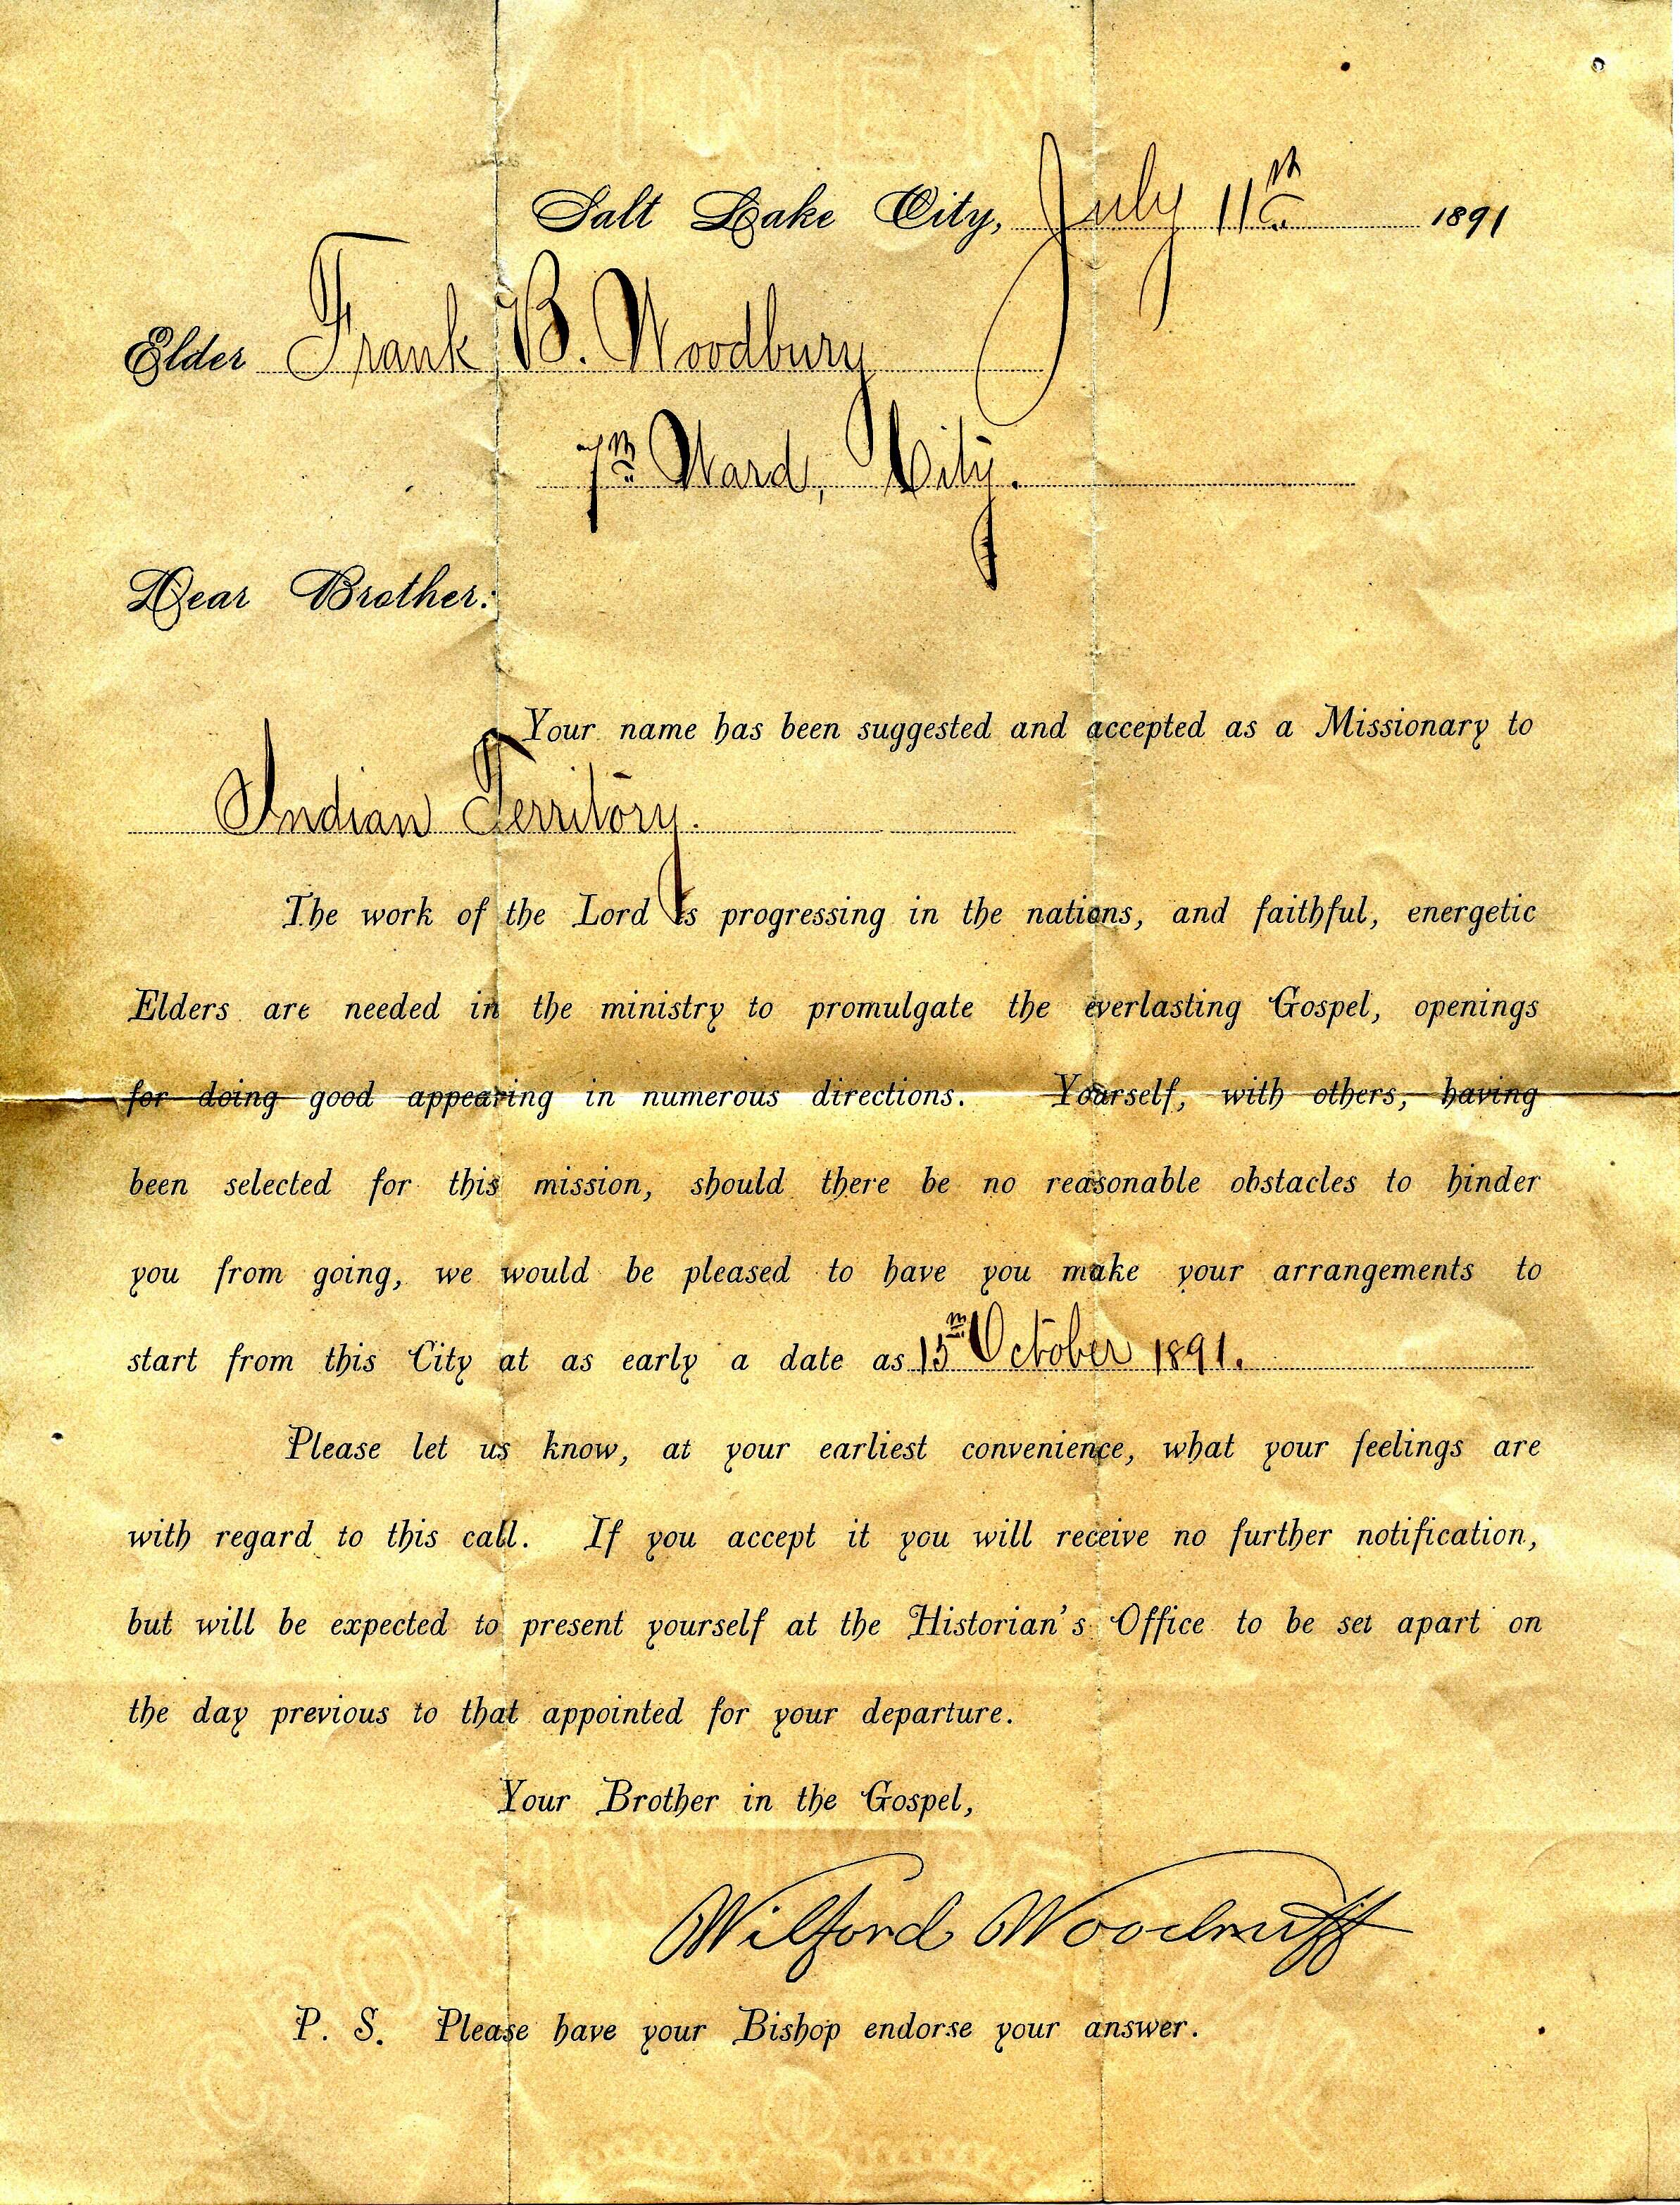 Salt Lake City, July 11th 1891
Elder Frank B. Woodbury
7th Ward, City.
Dear Brother:
Your name has been suggested and accepted as a Missionary to
Indian Territory.
The work of the Lord is progressing in the nations, and faithful, energetic
Elders are needed in the ministry to promulgate the everlasting Gospel, openings
for doing good appearing in numerous directions. Yourself, with others, having
been selected for this mission, should there be no reasonable obstacles to hinder
you from going, we would be pleased to have you make your arrangements to
start from this City at as early a date as 15th October 1891.
Please let us know, at your earliest convenience, what your feelings are
with regard to this call. If you accept it you will receive no further notification,
but will be expected to present yourself at the Historian's Office to be set apart on
the day previous to that appointed for your departure.
Your Brother in the Gospel,
Wilford Woodruff
P. S. Please have your Bishop endorse your answer.